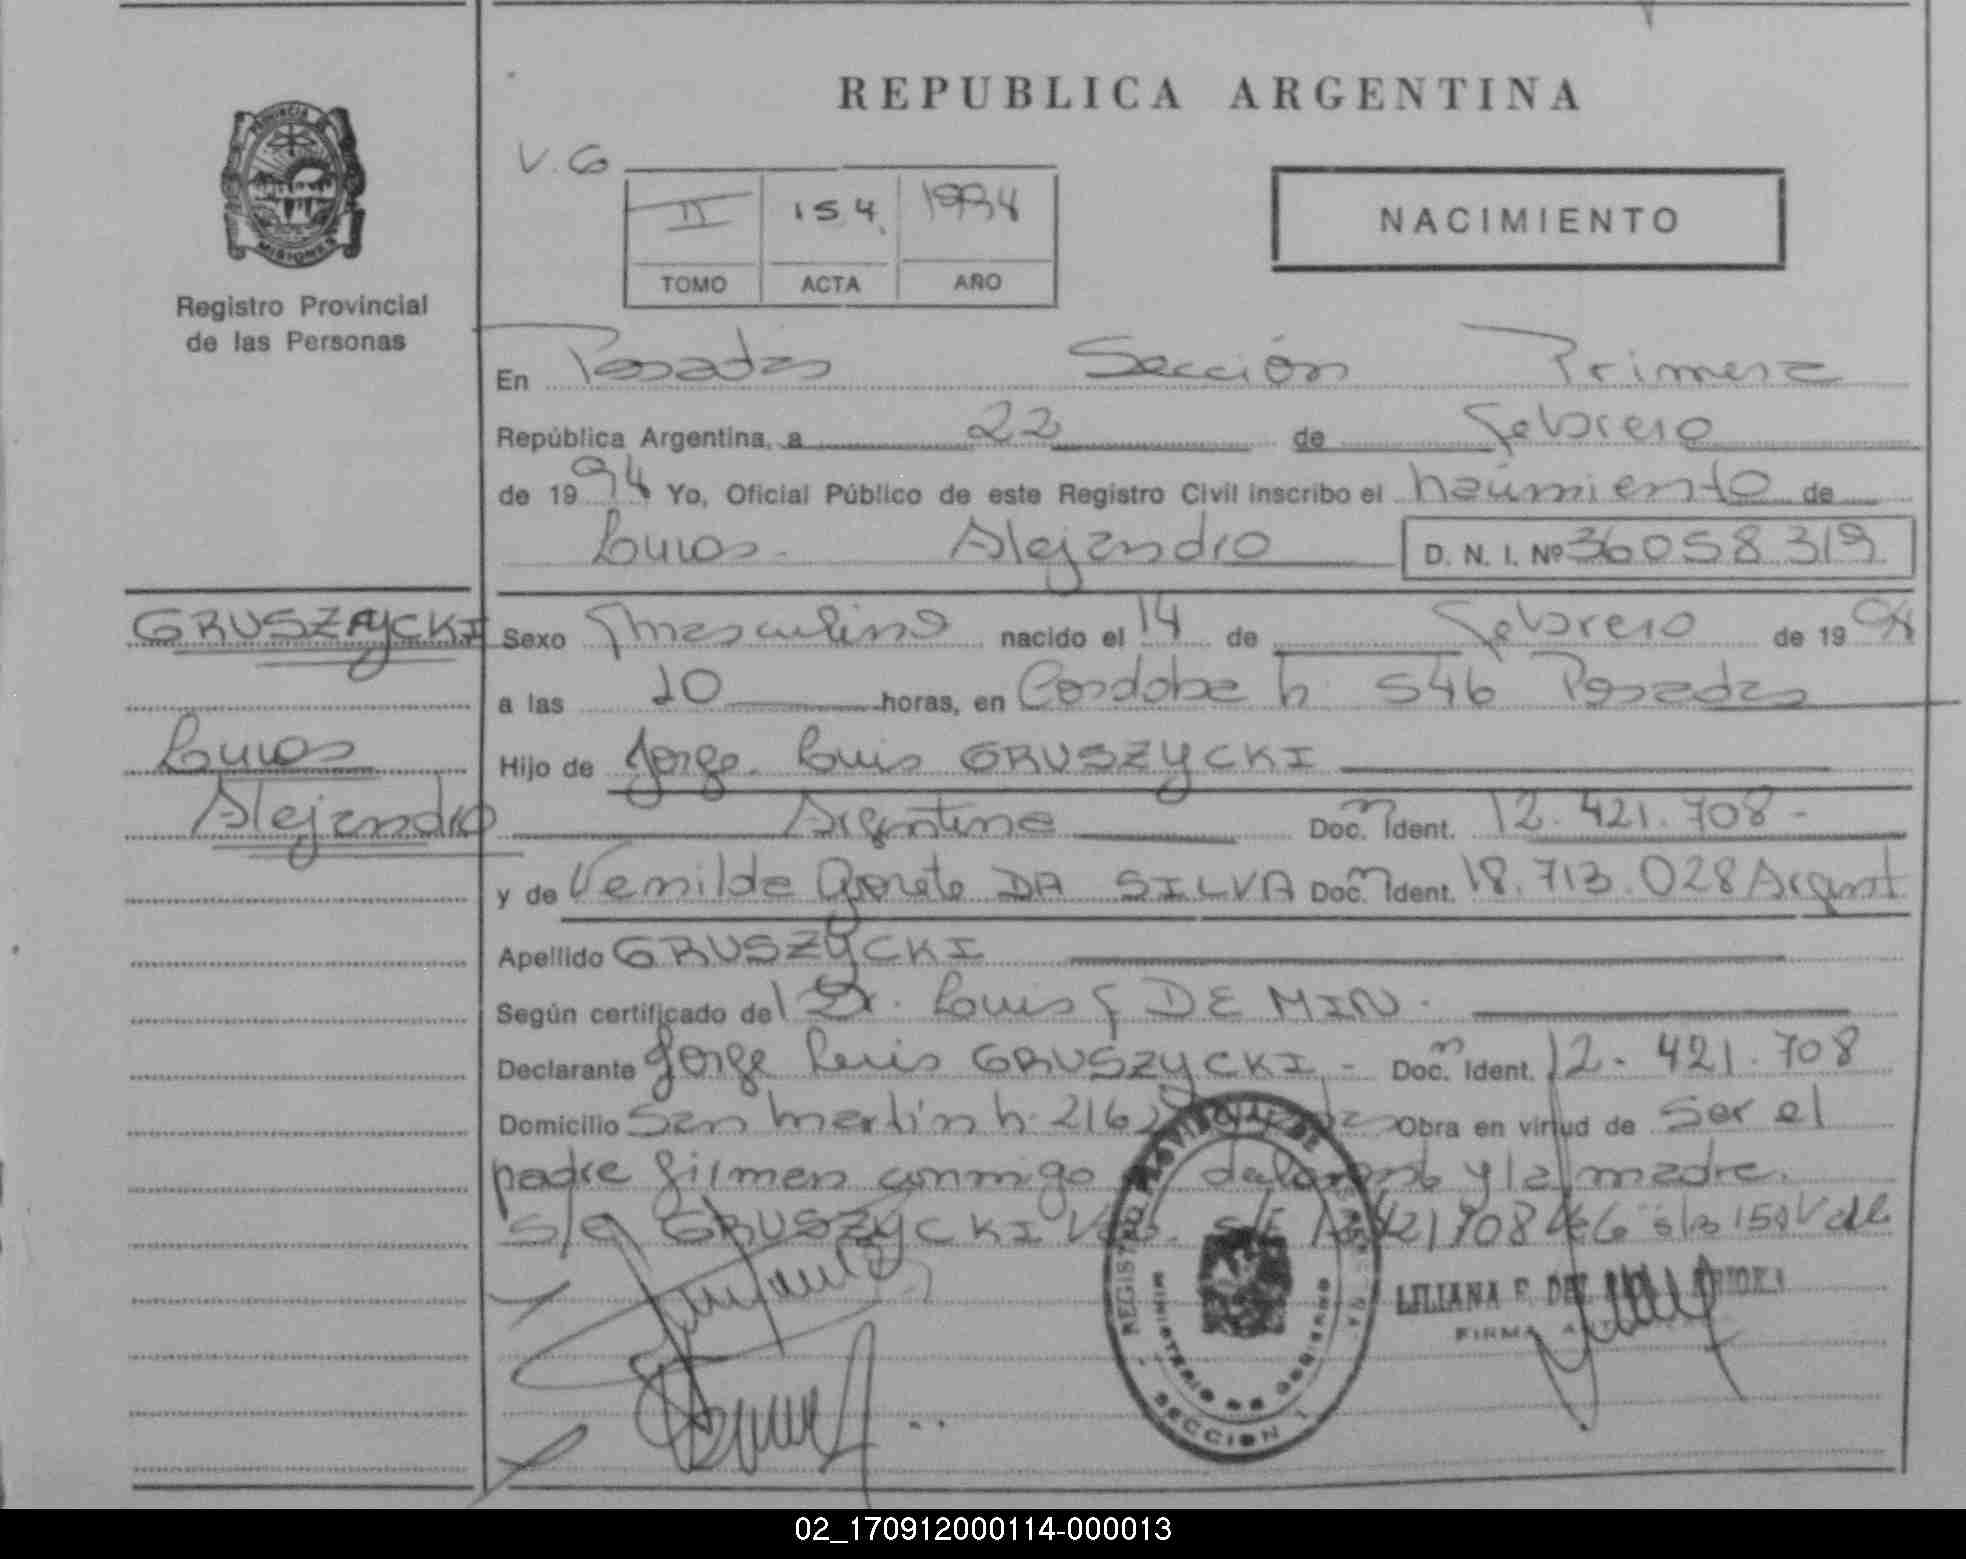 REPUBLICA ARGENTINA
V.G
II 154 1994
TOMO ACTA AÑO
NACIMIENTO
PROVINCIA DE
MISIONES
Registro Provincial
de las Personas
En Posadas Sección Primera
República Argentina, a 22 de Febrero
de 1994 Yo, Oficial Público de este Registro Civil inscribo el nacimiento de
Lucas Alejandro D. N. I. Nº 36058319
GRUSZYCKI
Lucas
Alejandro
Sexo masculino nacido el 14 de Febrero de 1994
a las 10 horas, en Cordoba n 546 Posadas
Hijo de Jorge Luis GRUSZYCKI
Argentina Doc. Ident. 12.421.708-
y de Venilda Gorete DA SILVA Doc. Ident. 18.713.028 Argent
Apellido GRUSZYCKI
Según certificado del Dr. Luis F DE MIN.
Declarante Jorge Luis GRUSZYCKI.- Doc. Ident. 12-421.708
Domicilio San martin n. 216 Obra en virtud de Ser el
padre firman conmigo y la madre.
GRUSZYCKI Vale
REGISTRO PROVINCIAL DE LAS PERSONAS
MINISTERIO DE GOBIERNO
SECCION 1
LILIANA F. DEL
FIRMA
02_170912000114-000013